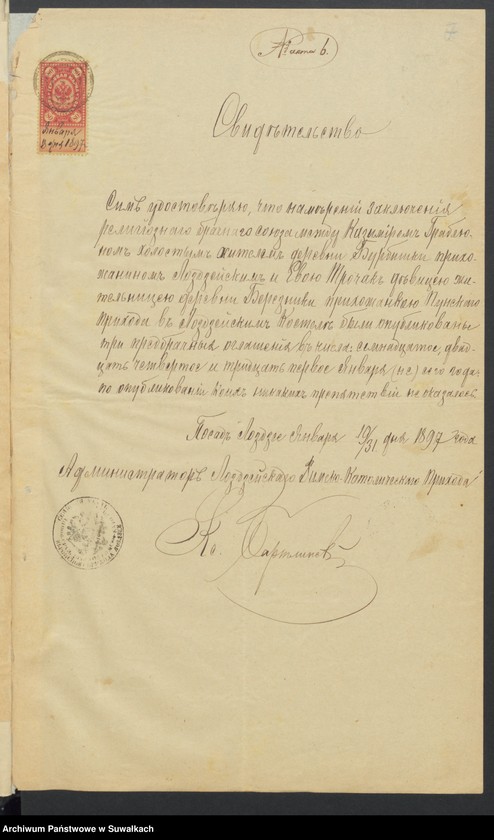 7
№ акта 6.
Свидѣтельство
Января
дня 1897
Симъ удостовѣряю, что намѣреній заключенія
религіознаго брачнаго союза между Казиміромъ
холостымъ жителемъ деревни прихо-
жаниномъ Лоздзейскимъ и Евою Трочакъ дѣвицею жи-
тельницею деревни Березники прихожанкою Пунскаго
Прихода въ Лоздзейскимъ Костелѣ были опубликованы
три предбрачныя оглашенія въ числа: семнадцатое, двад-
цать четвертое и тридцать первое Января (нс) сего года
по опубликованіи коихъ никакихъ препятствій не оказалось
Посадъ Лоздзее Января 19/31 дня 1897 года
Администраторъ Лоздзейскаго Римско-Католическаго Прихода
Кс.
Archiwum Państwowe w Suwałkach